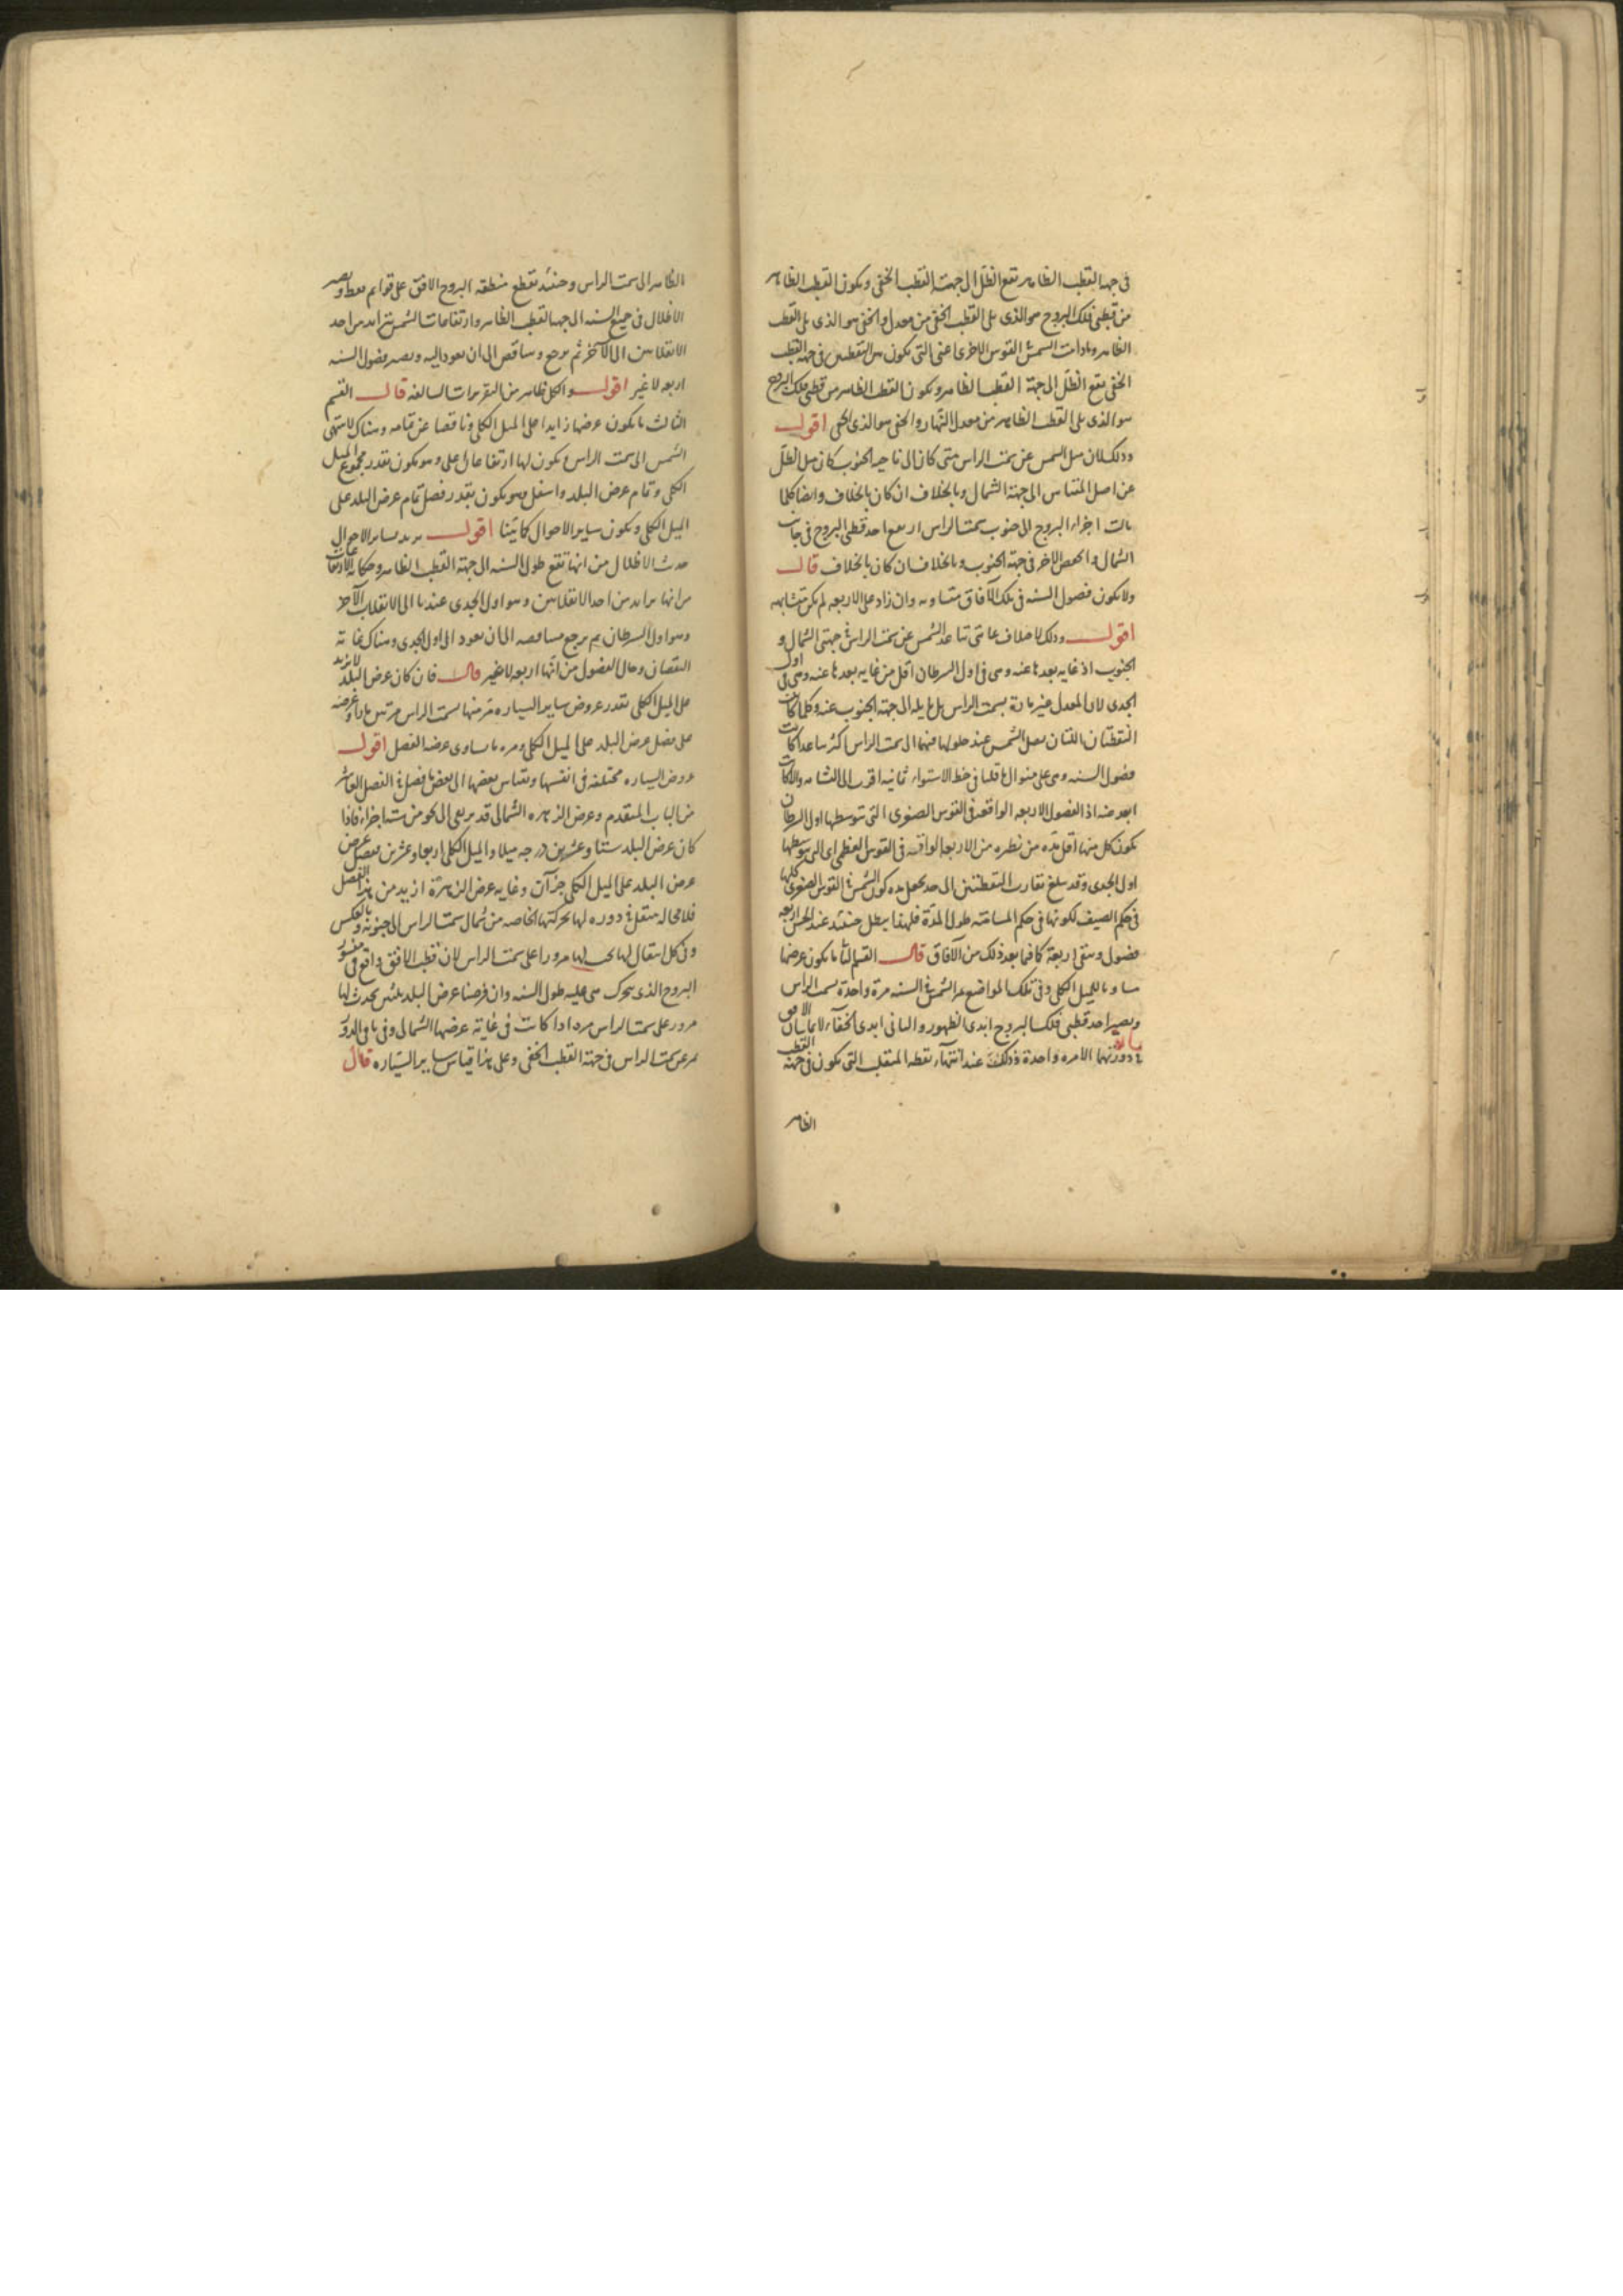 في جهة القطب الظاهر تقع الظل الى جهة القطب الخفي ويكون القطب الظاهر
من قطبي فلك البروج هو الذي يلي القطب الخفي من معدل والخفي هو الذي يلي القطب
الظاهر وما دامت الشمس في القوس الاخرى اعني التي يكون من النقطتين في جهة القطب
الخفي يقع الظل الى جهة القطب الظاهر ويكون القطب الظاهر من قطبي فلك البروج
هو الذي يلي القطب الظاهر من معدل النهار والخفي هو الذي يلي الخفي اقول
وذلك لان ميل الشمس عن سمت الراس متى كان الى ناحية الجنوب كان ميل الظل
عن اصل المقياس الى جهة الشمال وبالخلاف ان كان بالخلاف وايضا كلما
مالت اجزاء البروج الى جنوب سمت الراس ارتفع احد قطبي البروج في جانب
الشمال وانخفض الاخر في جهة الجنوب وبالخلاف ان كان بالخلاف قال
ولا يكون فصول السنة في تلك الآفاق متساوية وان زاد على الاربعة لم يكن متشابهة
اقول وذلك لاختلاف غايتي تباعد الشمس عن سمت الراس في جهتي الشمال و
الجنوب اذ غاية بعدها عنه وهي في اول السرطان اقل من غاية بعدها عنه وهي في اول
الجدي لان المعدل غير مارة بسمت الراس بل مايلة الى جهة الجنوب عنه وكلما كانت
النقطتان اللتان يصل الشمس عند حلولها فيهما الى سمت الراس اكثر تباعدا كانت
فصول السنة وهي على منوال ما قلنا في خط الاستواء ثمانية اقرب الى التشابه والا كانت
ابعد منه اذ الفصول الاربعة الواقعة في القوس الصغرى التي يتوسطها اول السرطان
يكون كل منها اقل مدة من نظيره من الاربعة الواقعة في القوس العظمى اي التي يتوسطها
اول الجدي وقد يبلغ تقارب النقطتين الى حد يجعل مدة كون الشمس في القوس الصغرى كلها
في حكم الصيف لكونها في حكم المسامتة طول المدة فلهذا يبطل حينئذ عند الحس اربعة
فصول ويبقى اربعة كما فيما بعد ذلك من الآفاق قال القسم الثاني ما يكون عرضها
مساويا للميل الكلي وفي تلك المواضع يمر الشمس في السنة مرة واحدة بسمت الراس
ويصير احد قطبي فلك البروج ابدي الظهور والثاني ابدي الخفاء لا يماسان الافق
في دورتهما الا مرة واحدة وذلك عند انتهاء نقطة المنقلب التي يكون في جهة القطب
الظاهر
الظاهر الى سمت الراس وحينئذ تقطع منطقة البروج الافق على قوايم فقط ويصير
الاظلال في جميع السنة الى جهة القطب الظاهر وارتفاعات الشمس يتزايد من احد
الانقلابين الى الآخر ثم يرجع ويتناقص الى ان يعود اليه ويصير فصول السنة
اربعة لا غير اقول والكل ظاهر من التقريرات السالفة قال القسم
الثالث ما يكون عرضها زايدا على الميل الكلي وناقصا عن تمامه وهناك لا ينتهي
الشمس الى سمت الراس ويكون لها ارتفاعان اعلى وهو يكون بقدر مجموع الميل
الكلي وتمام عرض البلد واسفل وهو يكون بقدر فضل تمام عرض البلد على
الميل الكلي ويكون ساير الاحوال كما بينا اقول يريد بساير الاحوال
حديث الاظلال من انها تقع طول السنة الى جهة القطب الظاهر وحكاية الارتفاعات
من انها تتزايد من احد الانقلابين وهو اول الجدي عندنا الى الانقلاب الآخر
وهو اول السرطان ثم يرجع متناقصة الى ان يعود الى اول الجدي وهناك غاية
النقصان وحال الفصول من انها اربعة لا غير قال فان كان عرض البلد لا يزيد
على الميل الكلي بقدر عروض ساير السيارة مر منها بسمت الراس مرتين ما زاد عرضه
على فضل عرض البلد على الميل الكلي ومرة ما يساوي عرضه الفضل اقول
عروض السيارة مختلفة في انفسها وبقياس بعضها الى بعض ما فصل في الفصل العاشر
من الباب المتقدم وعرض الزهرة الشمالي قد يرتقي الى نحو من ستة اجزاء فاذا
كان عرض البلد ستا وعشرين درجة مثلا والميل الكلي اربعا وعشرين يفضل عرض
عرض البلد على الميل الكلي جزآن وغاية عرض الزهرة ازيد من هذا الفضل
فلا محالة ينتقل في دورة لها بحركتها الخاصة من شمال سمت الراس الى جنوبه وبالعكس
وفي كل انتقال لها يجب لها مرور على سمت الراس لان قطب الافق واقع في
البروج الذي يتحرك هي عليه طول السنة وان فرضنا عرض البلد ثلثين يحدث لها
مرور على سمت الراس مرة اذا كانت في غاية عرضها الشمالي وفي باقي الدور
يمر عن سمت الراس في جهة القطب الخفي وعلى هذا قياس ساير السيارة قال